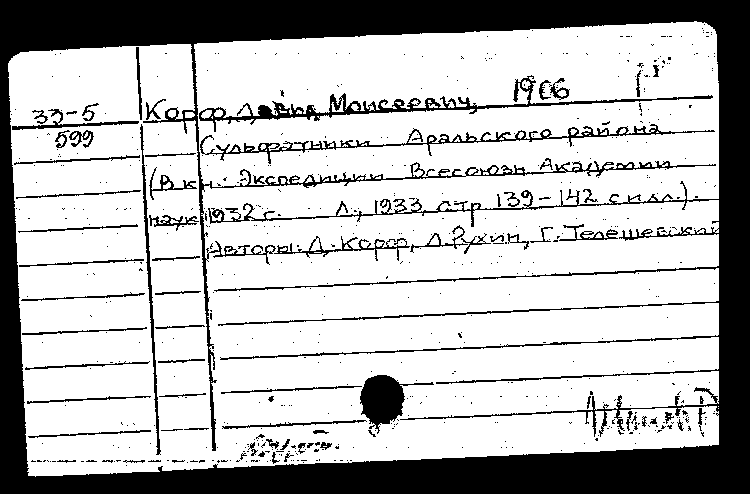 33-5 Корф, Давид Моисеевич, 1906
599
Сульфатники Аральского района
(В кн.: Экспедиции Всесоюзн. Академии
наук 1932 г. Л., 1933, стр. 139-142 с илл.).
Авторы: Д. Корф, Л. Рухин, Г. Телешевский